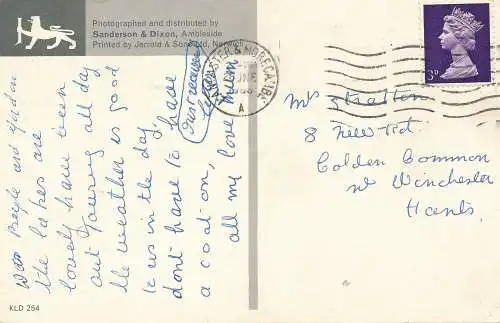 Photographed and distributed by
Sanderson & Dixon, Ambleside
Printed by Jarrold & Sons Ltd, Norwich
KLD 254
LANCASTER & MORECAMBE
JNE
A
3D
Dear and
the lakes are
lovely have been
out all day
the weather is good
to us in the day
dont have to have
a coat on,
all my love Mum
Mrs Stratton
8 New Rd
Colden Common
Nr Winchester
Hants.